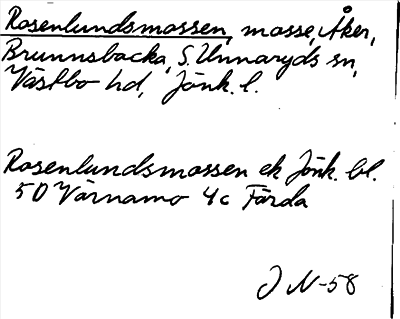 Rosenlundsmossen, mosse, Åker,
Brunnsbacka, S. Unnaryds sn,
Västbo hd, Jönk. l.
Rosenlundsmossen ek Jönk. bl.
5D Värnamo 4c Färda
J N-58